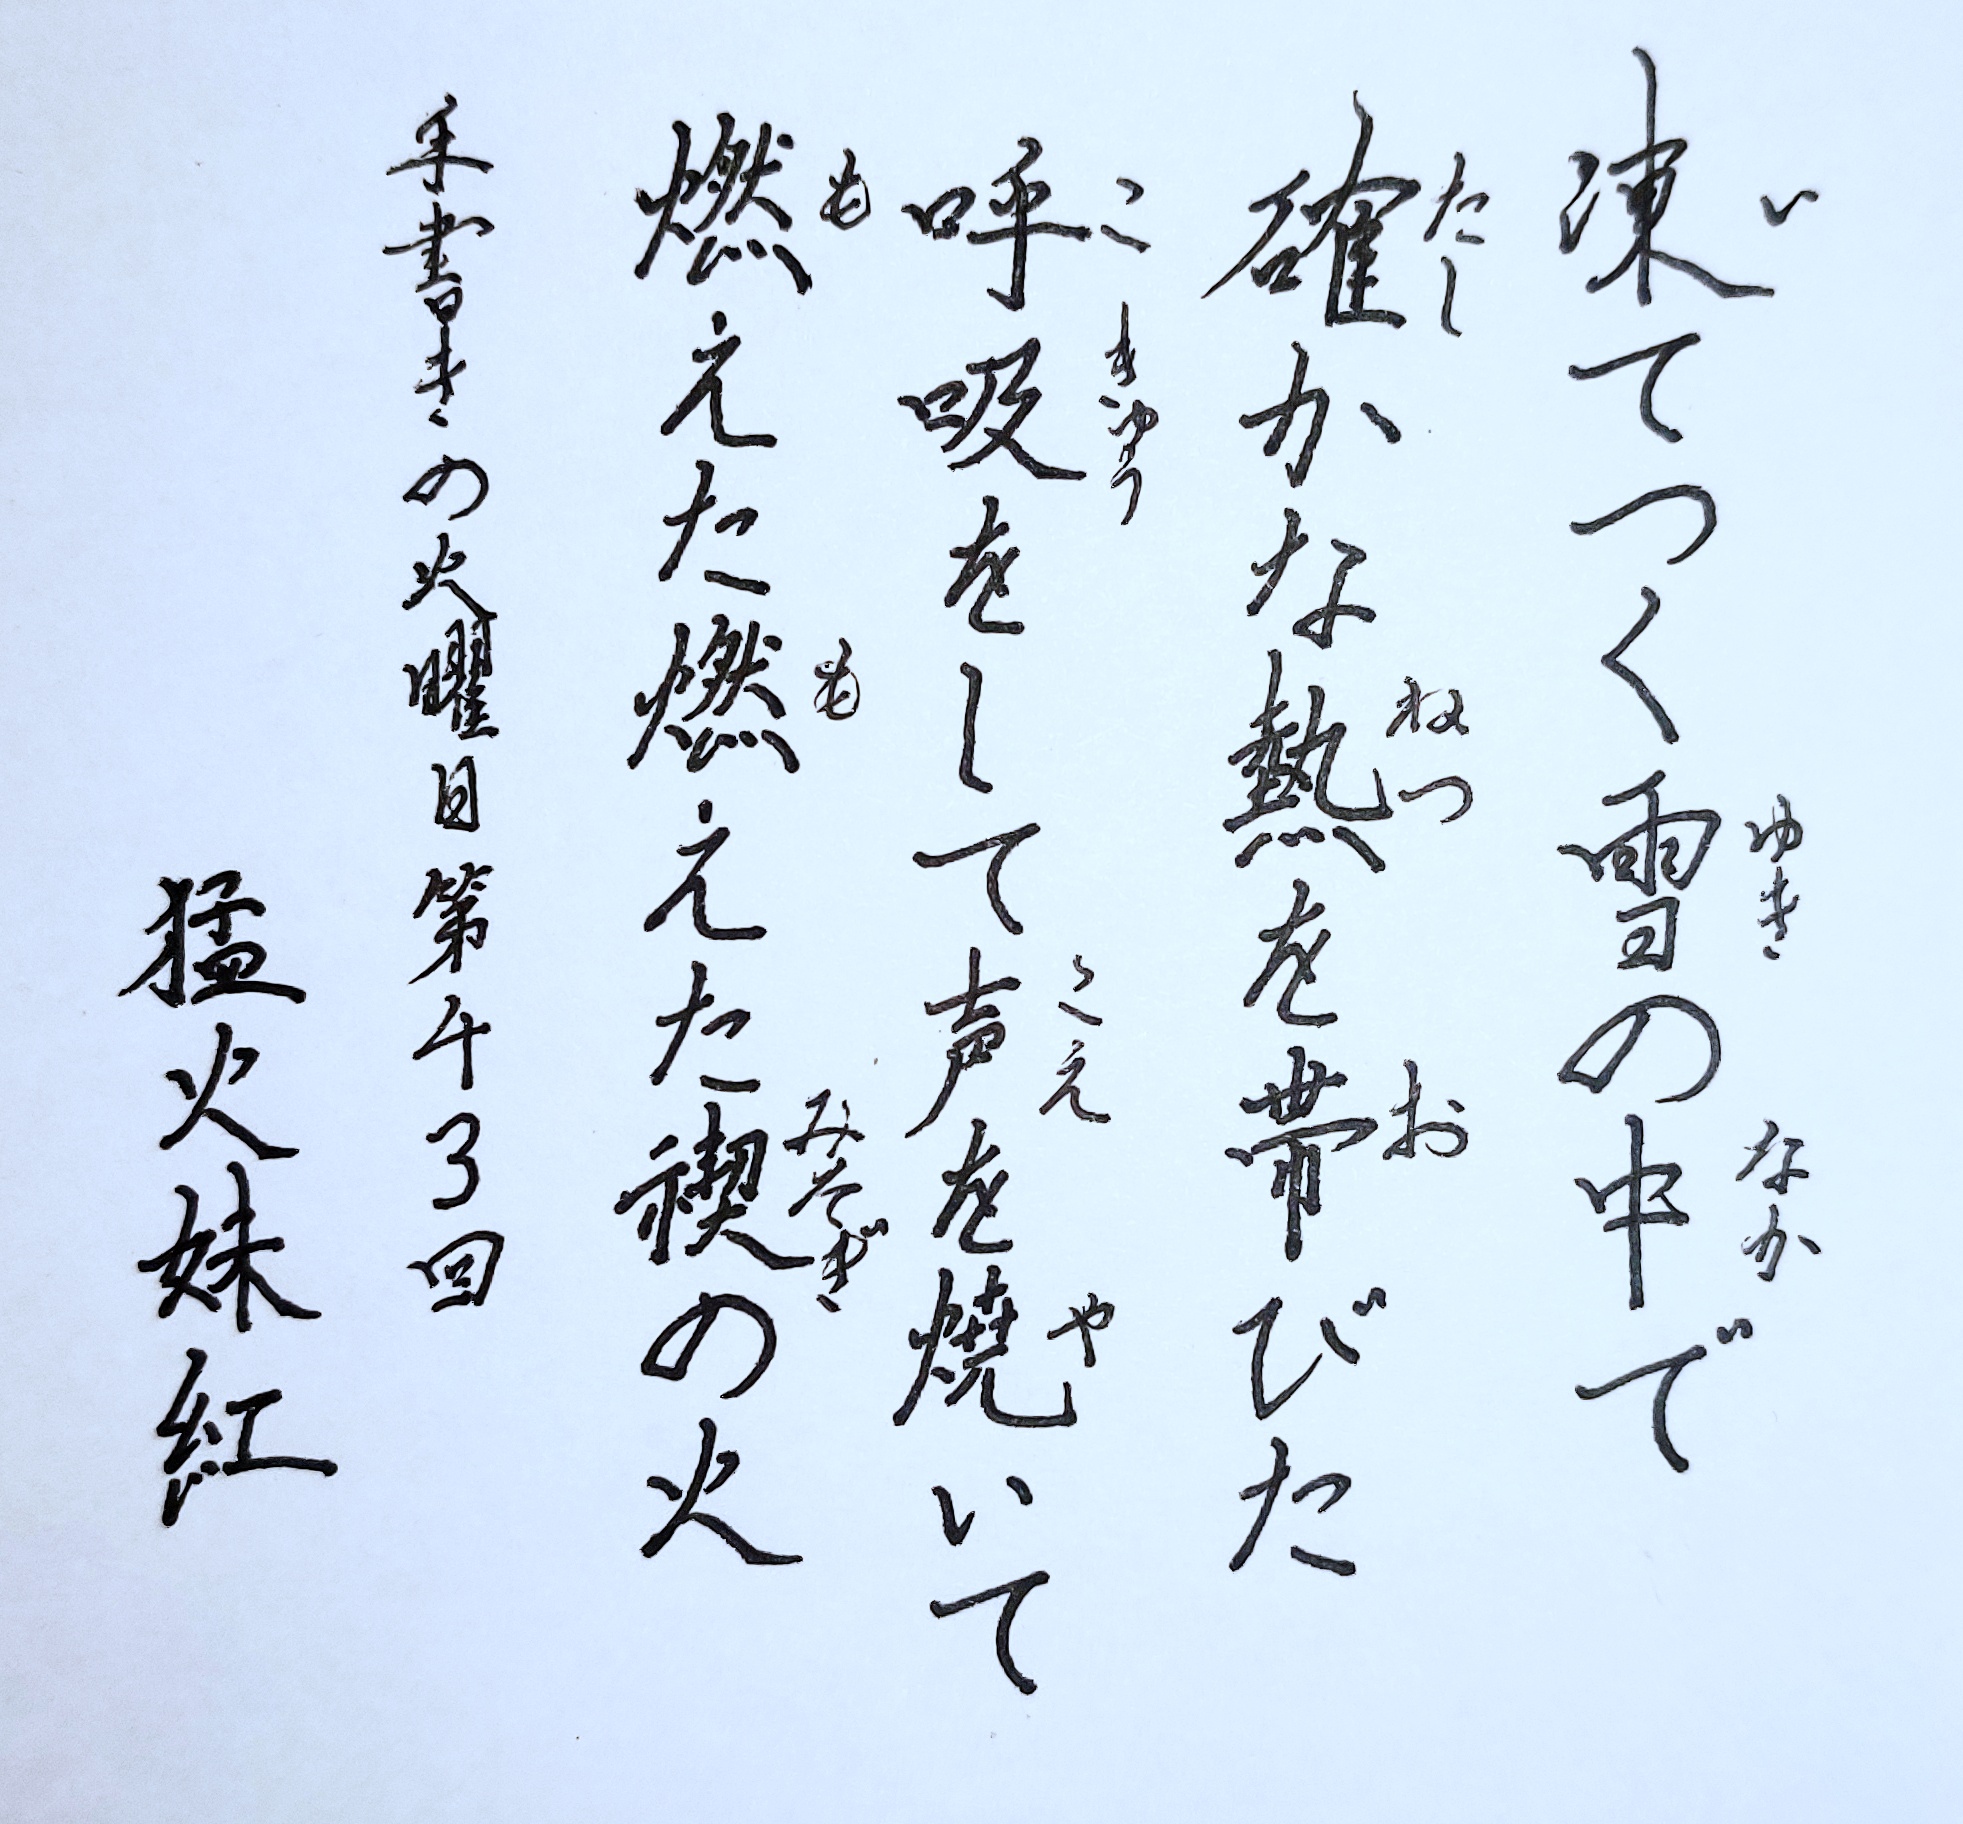 い ゆき なか
凍てつく雪の中で
たし ねつ お
確かな熱を帯びた
こ きゅう こえ や
呼吸をして声を焼いて
も も みそぎ
燃えた燃えた禊の火
手書きの火曜日第43回
猛火妹紅